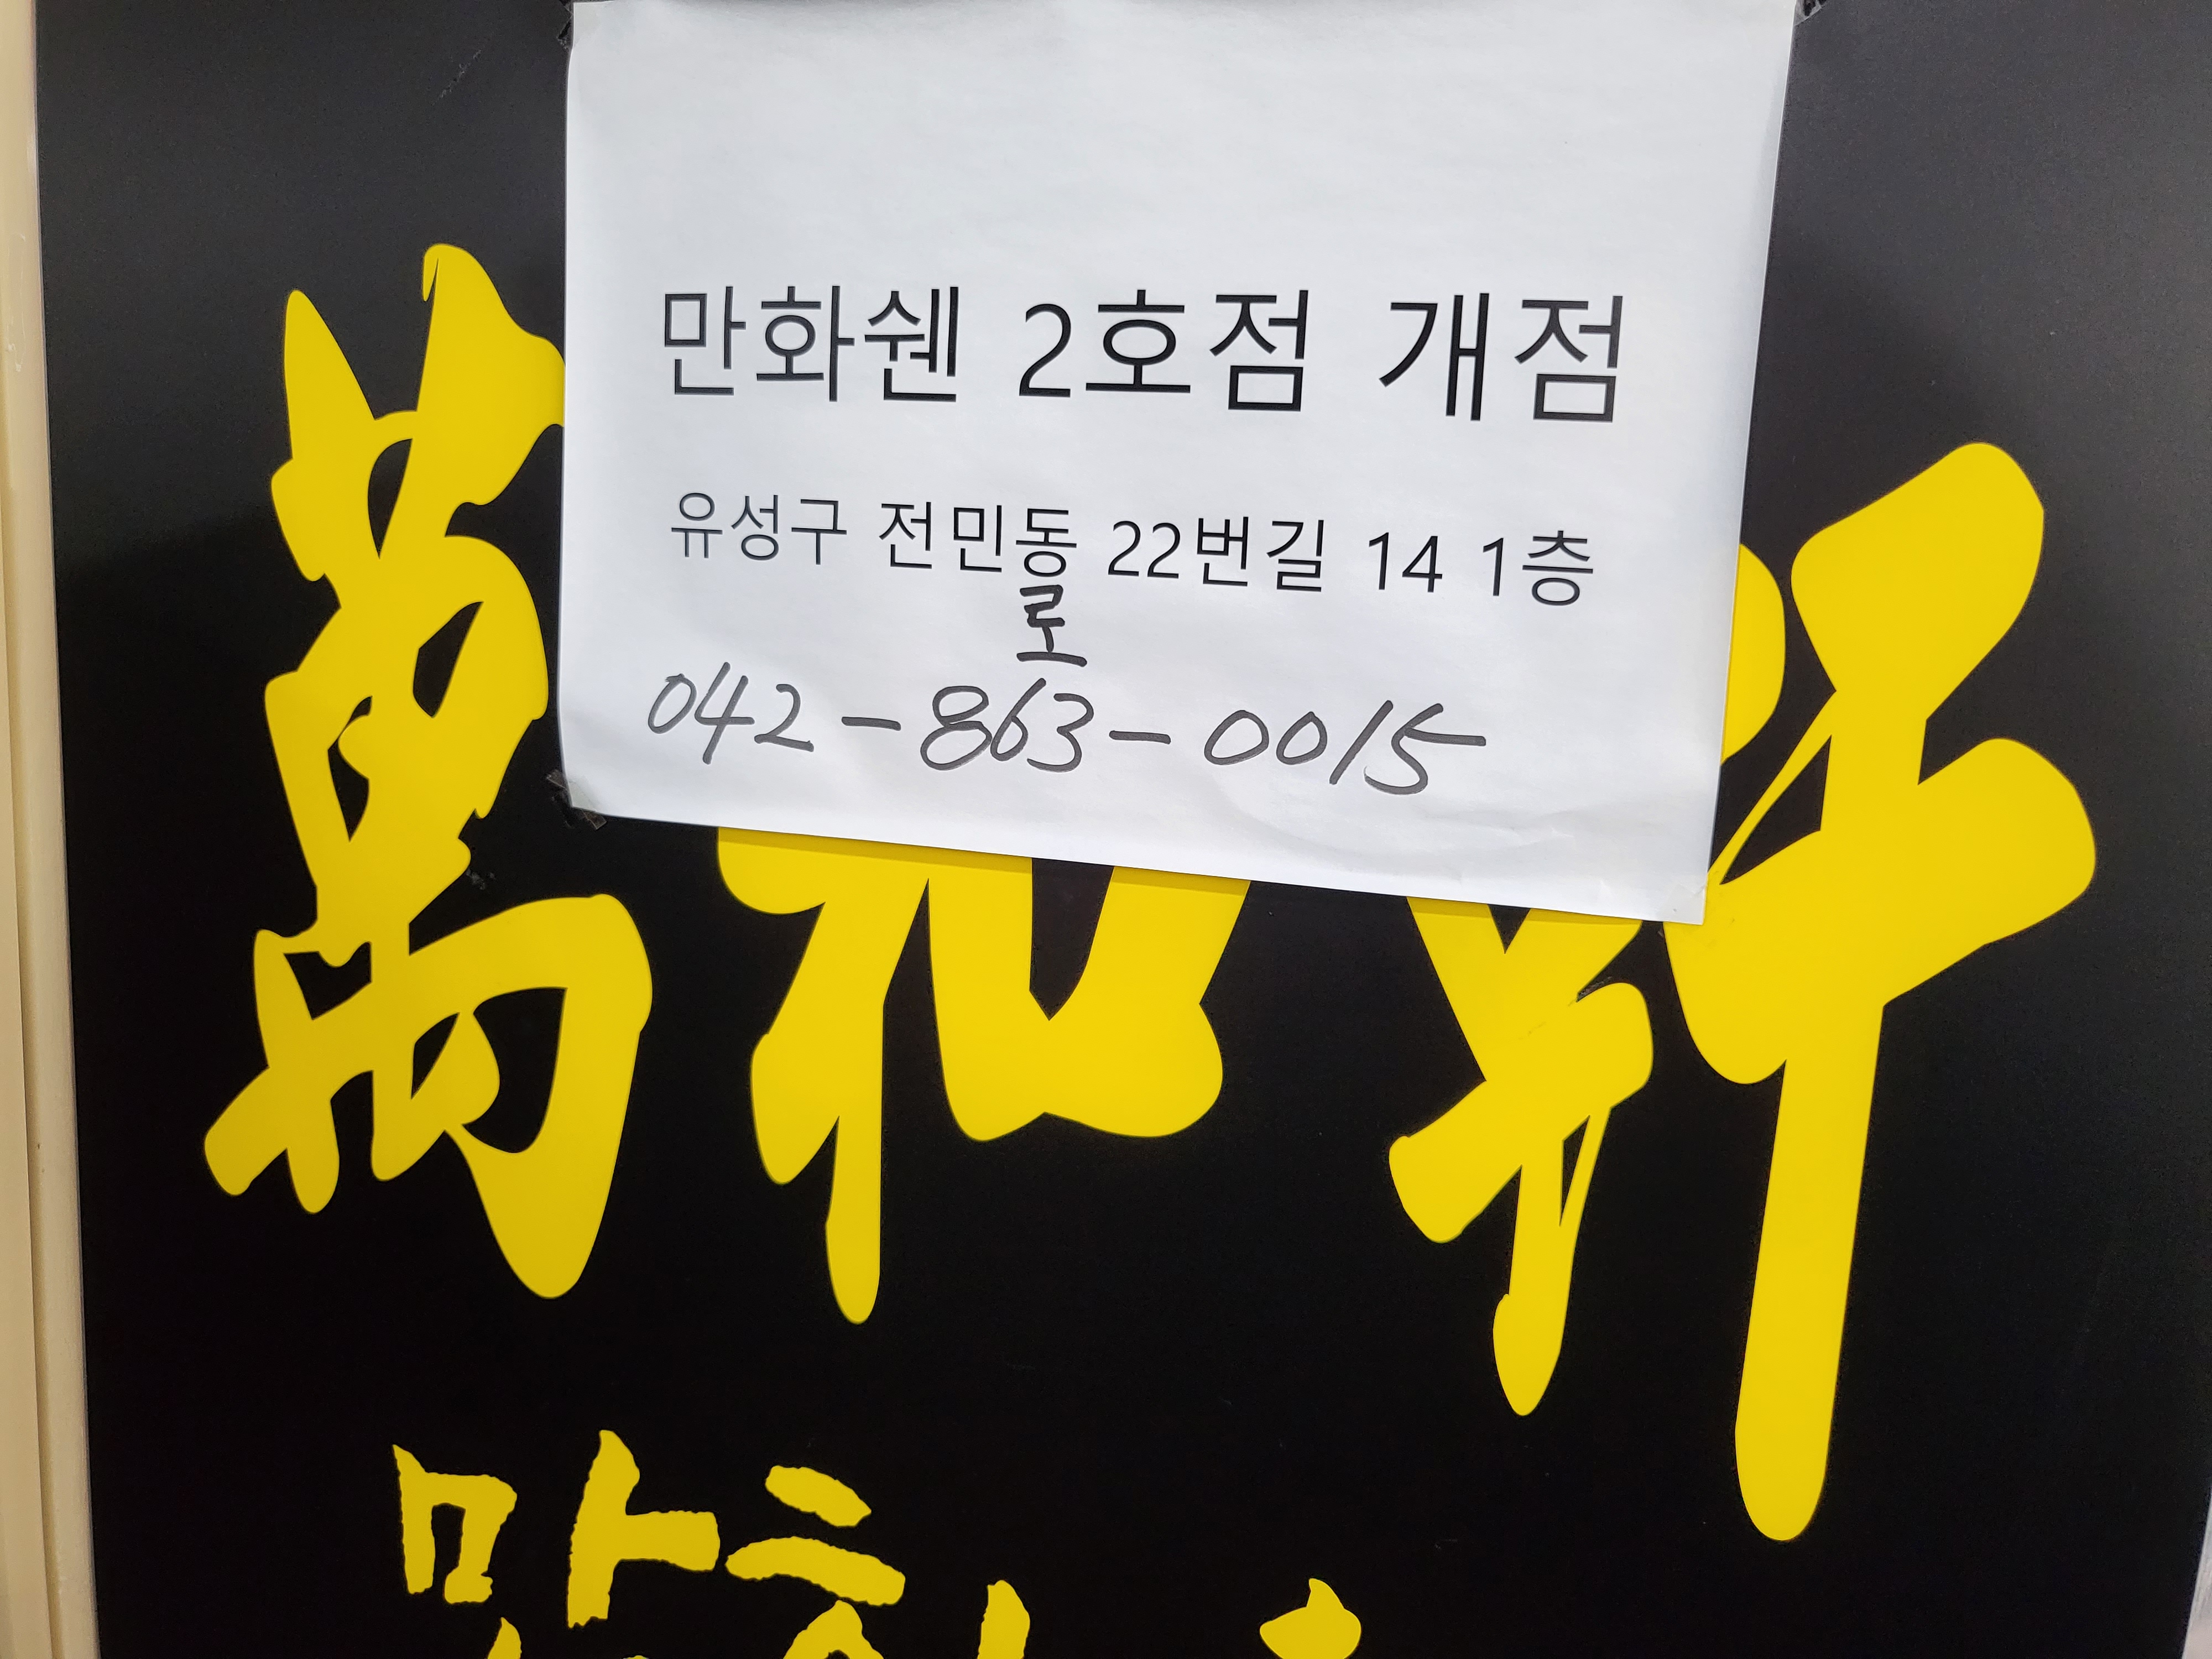 만화쉔 2호점 개점
유성구 전민동 22번길 14 1층
로
042-863-0015
萬